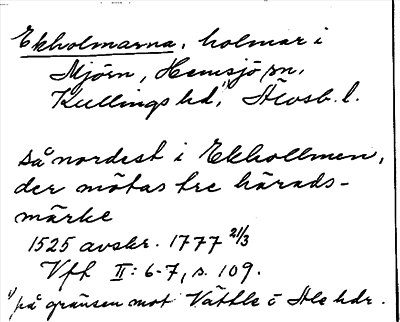 Ekholmarna, holmar i
Mjörn, Hemsjö sn,
Kullings hd,¹⁾ Älvsb. l.
Då nordest i Ekhollmen,
der mötas tre härads-
märke
1525 avskr. 1777 21/3
Vfh II: 6-7, s. 109.
¹⁾ på gränsen mot Vättle o Ale hdr.